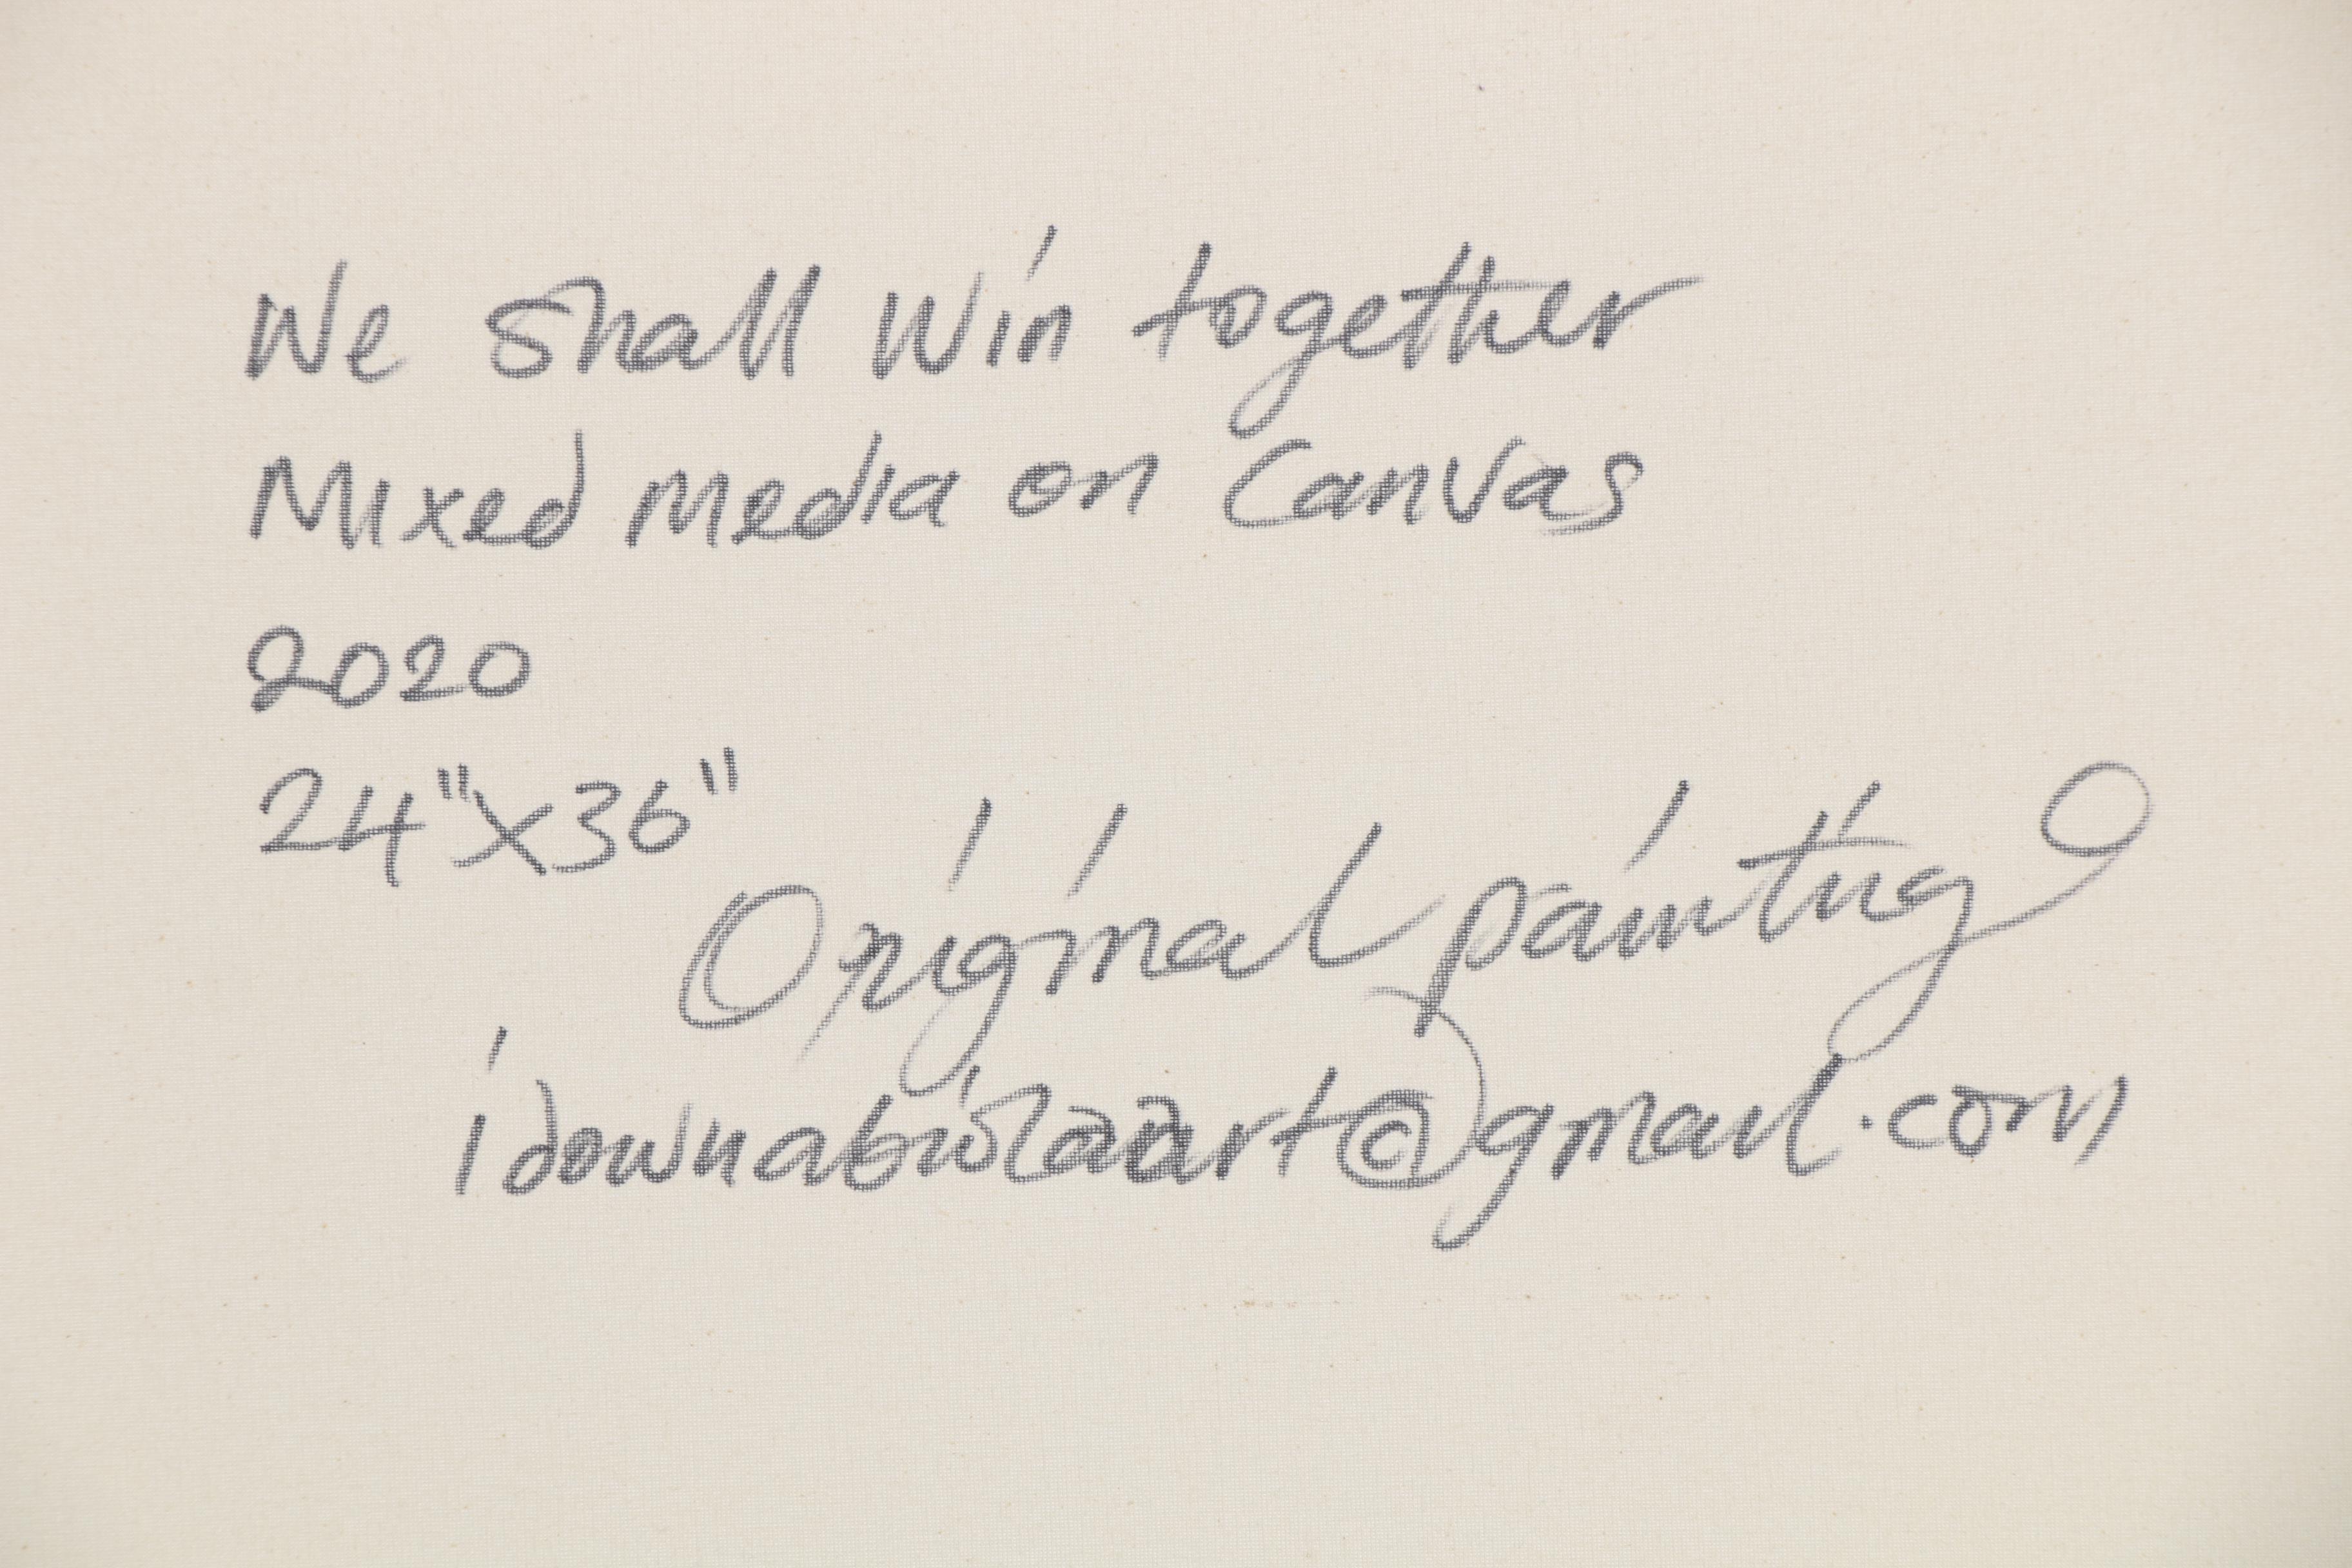 We shall win together
Mixed media on Canvas
2020
24"X36"
Original painting
idowuabiolaart@gmail.com